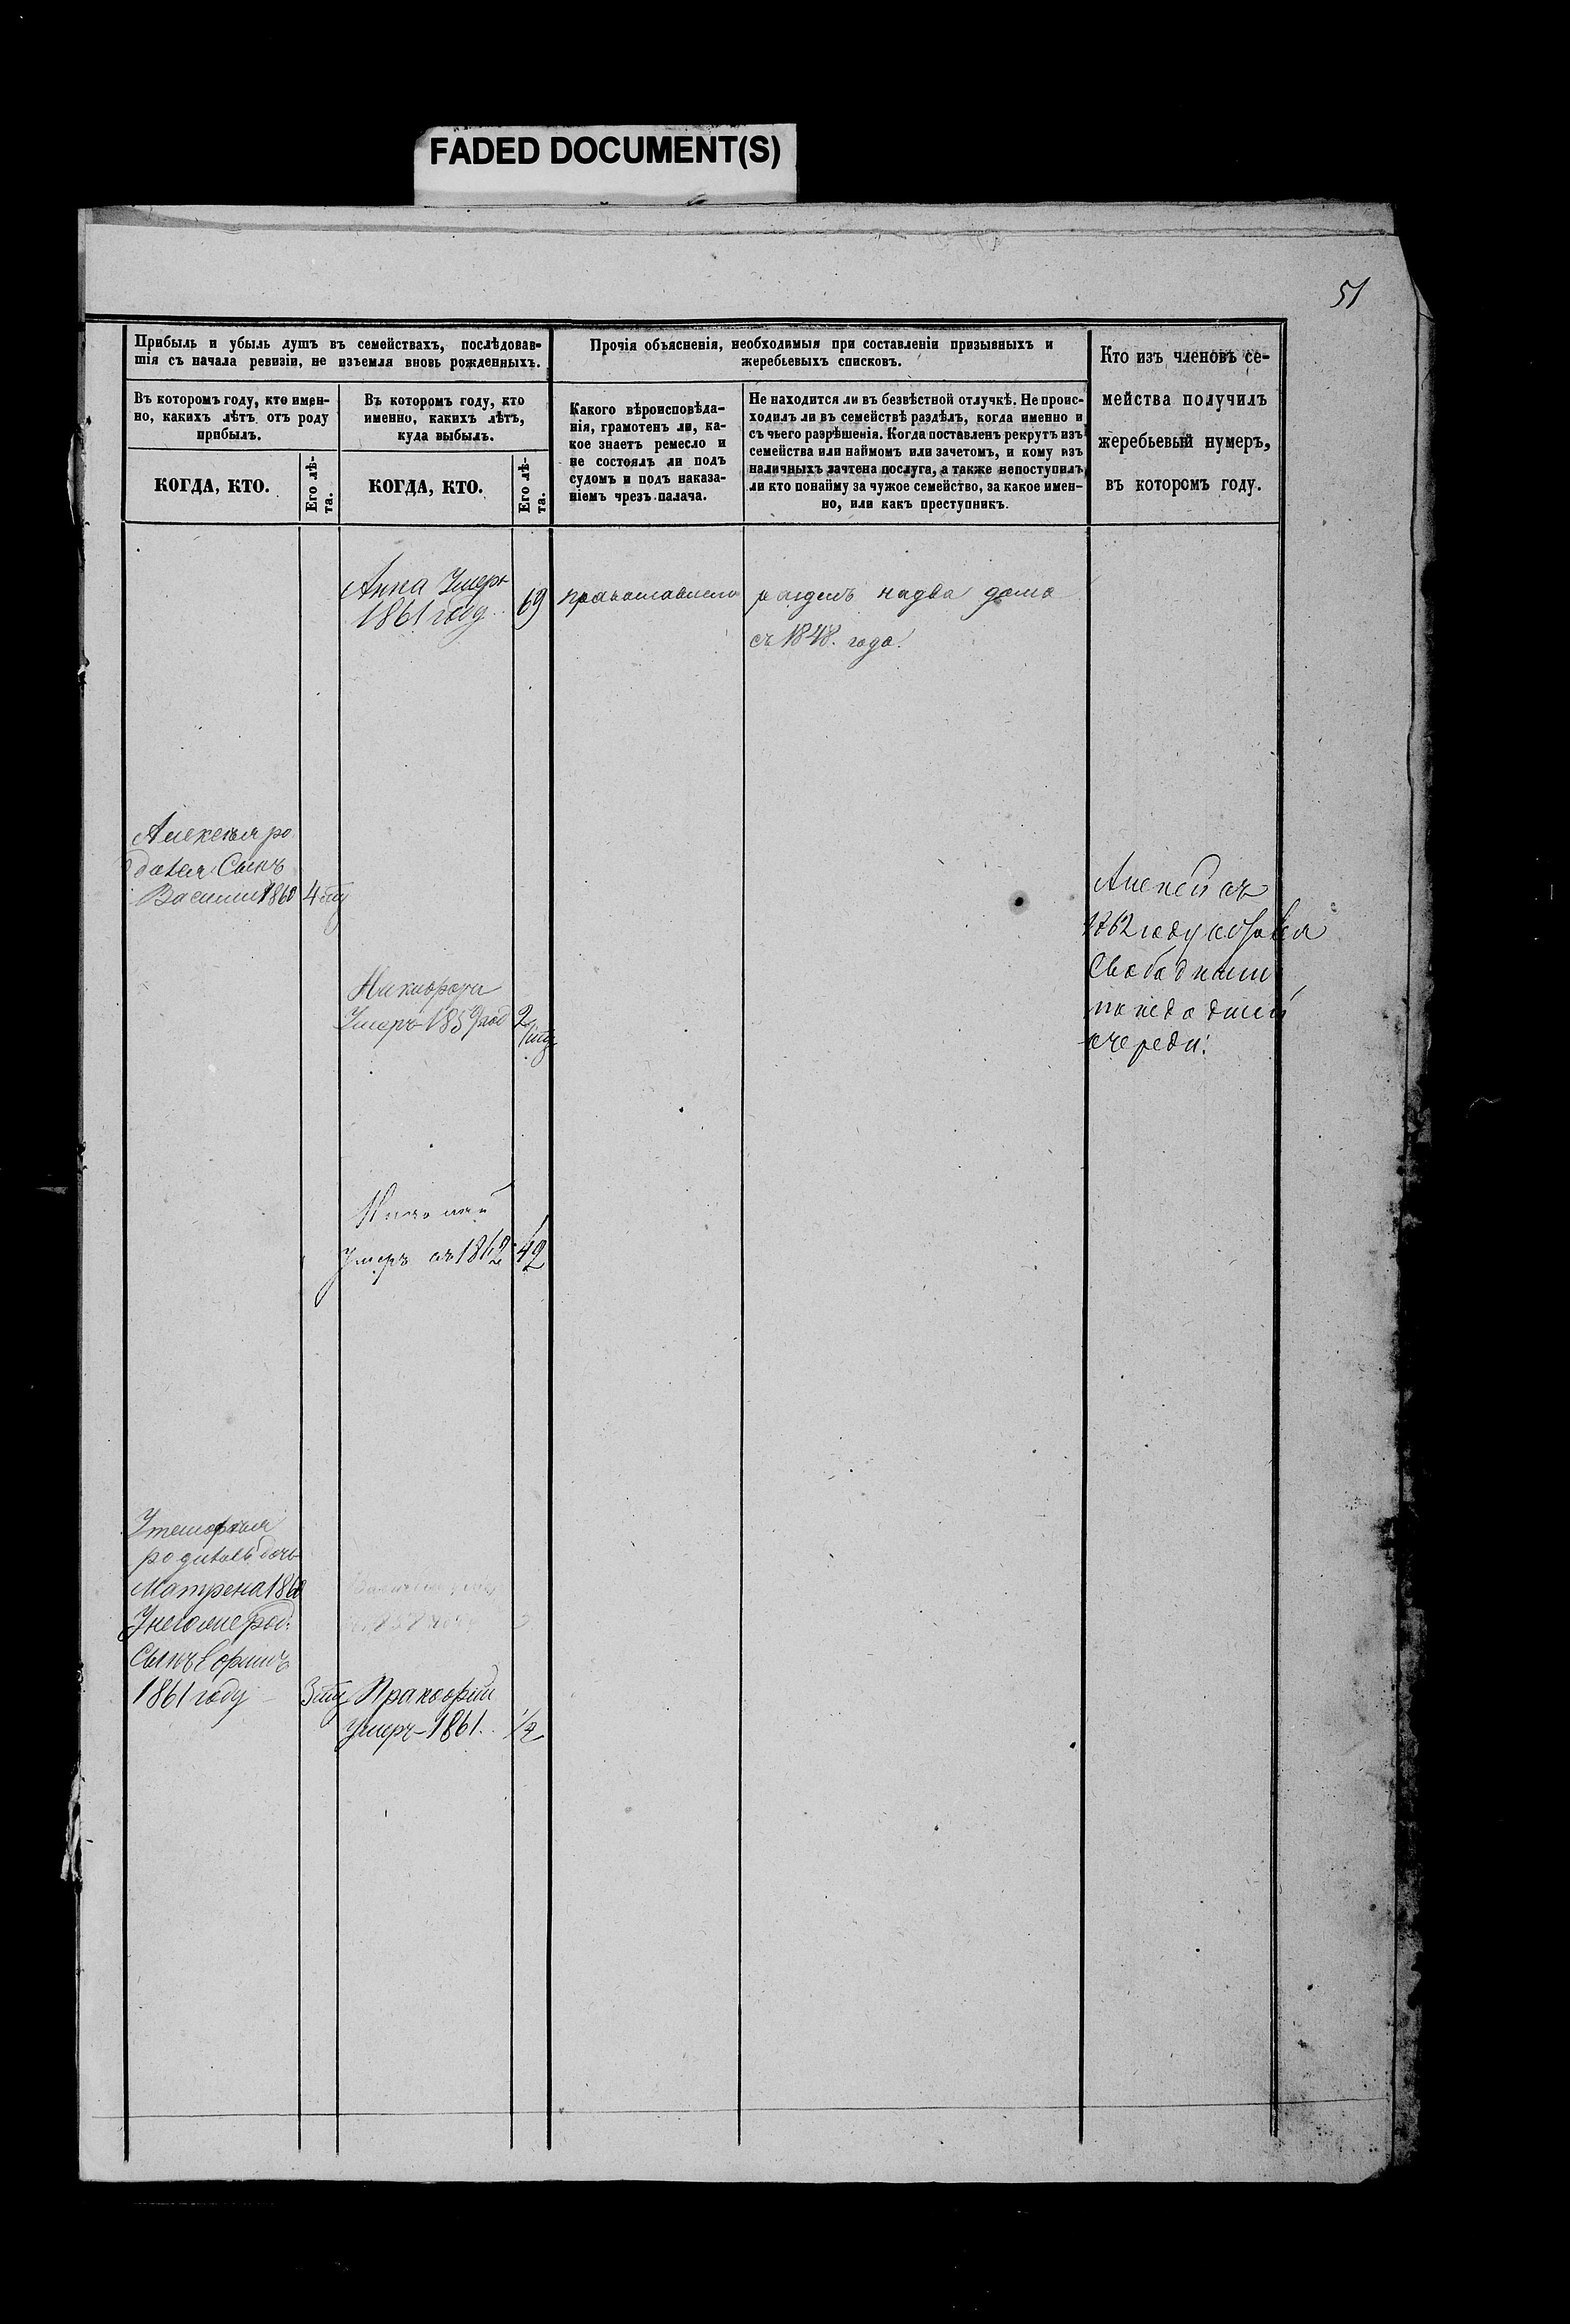 FADED DOCUMENT(S)
51
Прибыль и убыль душъ въ семействахъ, послѣдовав-
шія съ начала ревизіи, не изъемля вновь рожденныхъ.
Въ которомъ году, кто имен-
но, какихъ лѣтъ отъ роду
прибылъ.
КОГДА, КТО.
Его лѣ-
та.
Въ которомъ году, кто
именно, какихъ лѣтъ,
куда выбылъ.
КОГДА, КТО.
Его лѣ-
та.
Прочія объясненія, необходимыя при составленіи призывныхъ и
жеребьевыхъ списковъ.
Какого вѣроисповѣда-
нія, грамотенъ ли, ка-
кое знаетъ ремесло и
не состоялъ ли подъ
судомъ и подъ наказа-
ніемъ чрезъ палача.
Не находится ли въ безвѣстной отлучкѣ. Не проис-
ходилъ ли въ семействѣ раздѣлъ, когда именно и
съ чьего разрѣшенія. Когда поставленъ рекрутъ изъ
семейства или наймомъ или зачетомъ, и кому изъ
наличныхъ зачтена послуга, а также непоступилъ
ли кто понайму за чужое семейство, за какое имен-
но, или какъ преступникъ.
Кто изъ членовъ се-
мейства получилъ
жеребьевый нумеръ,
въ которомъ году.
Анна Умерь
1861 году 69
раздель надва дома
съ 1848. года.
Сынъ
Василий 1860 4
Алексей
1862 году
Свободным
очереди.
Умеръ 1859 2
Николай
Умеръ 1862 42
дочь
Матрена 1860
Сынъ
1861 году 3
Пракофий
умеръ 1861. 1/2